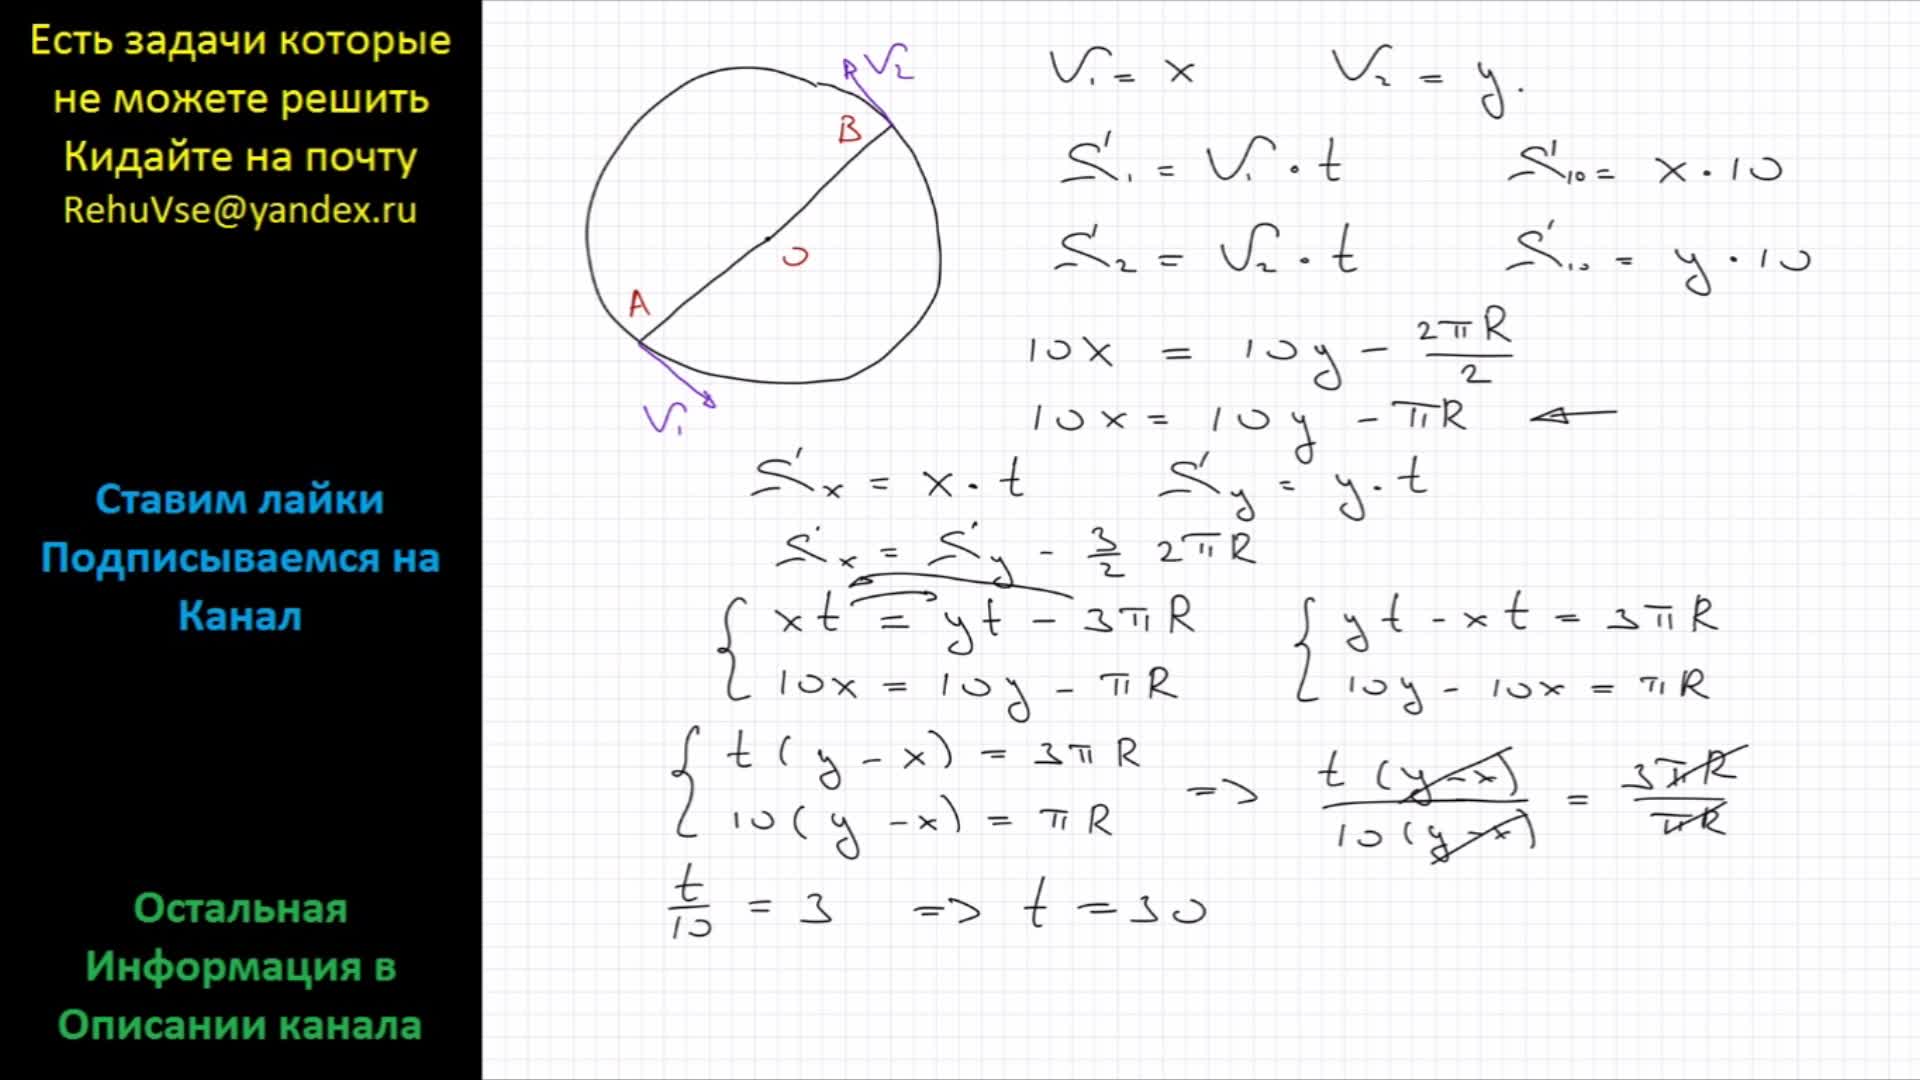 Есть задачи которые
не можете решить
Кидайте на почту
RehuVse@yandex.ru
Ставим лайки
Подписываемся на
Канал
Остальная
Информация в
Описании канала
V₂
B
O
A
V₁
V₁ = x V₂ = y.
S₁ = V₁ · t S₁₀ = x · 10
S₂ = V₂ · t S₁₀ = y · 10
10x = 10y - 2πR/2
10x = 10y - πR ←
Sₓ = x · t S_y = y · t
Sₓ = S_y - 3/2 2πR
{ xt = yt - 3πR { yt - xt = 3πR
10x = 10y - πR 10y - 10x = πR
{ t(y - x) = 3πR
10(y - x) = πR => t(y-x)/10(y-x) = 3πR/πR
t/10 = 3 => t = 30